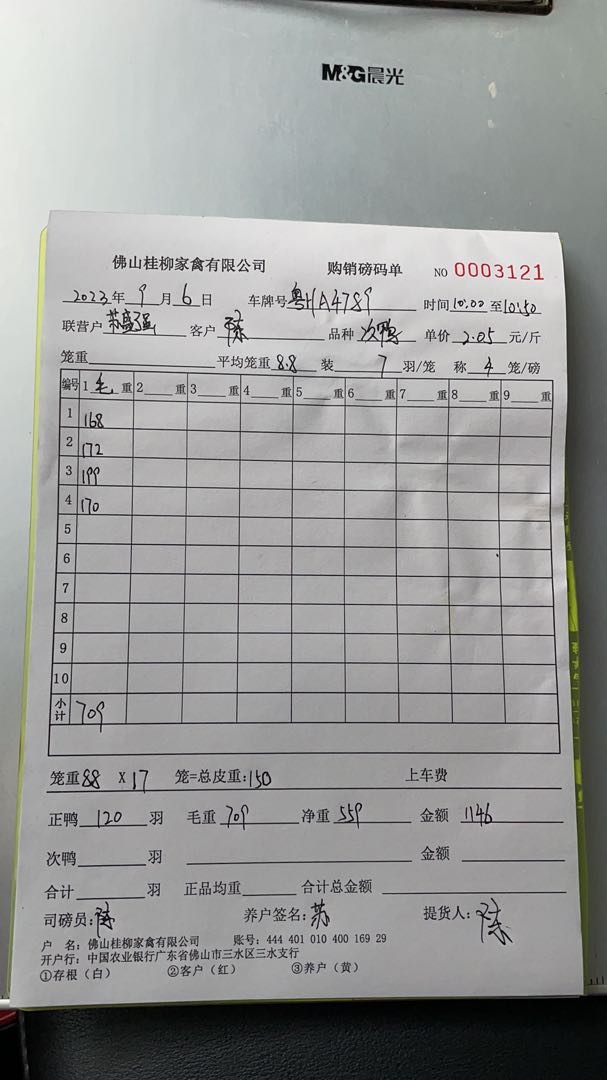 M&G晨光
佛山桂柳家禽有限公司 购销磅码单 NO 0003121
2023年 9 月 6 日 车牌号 粤HA4789 时间 10:00 至 10:50
联营户 苏盛强 客户 陈 品种 次鸭 单价 2.05 元/斤
笼重 平均笼重 8.8 装 7 羽/笼 称 4 笼/磅
编号 1 毛 重 2 重 3 重 4 重 5 重 6 重 7 重 8 重 9 重
1 168
2 172
3 199
4 170
5
6
7
8
9
10
小计 709
笼重 88 X 17 笼=总皮重:150 上车费
正鸭 120 羽 毛重 709 净重 559 金额 1146
次鸭 羽 金额
合计 羽 正品均重 合计总金额
司磅员:陈 养户签名:苏 提货人:陈
户 名:佛山桂柳家禽有限公司 账号:444 401 010 400 169 29
开户行:中国农业银行广东省佛山市三水区三水支行
①存根（白） ②客户（红） ③养户（黄）